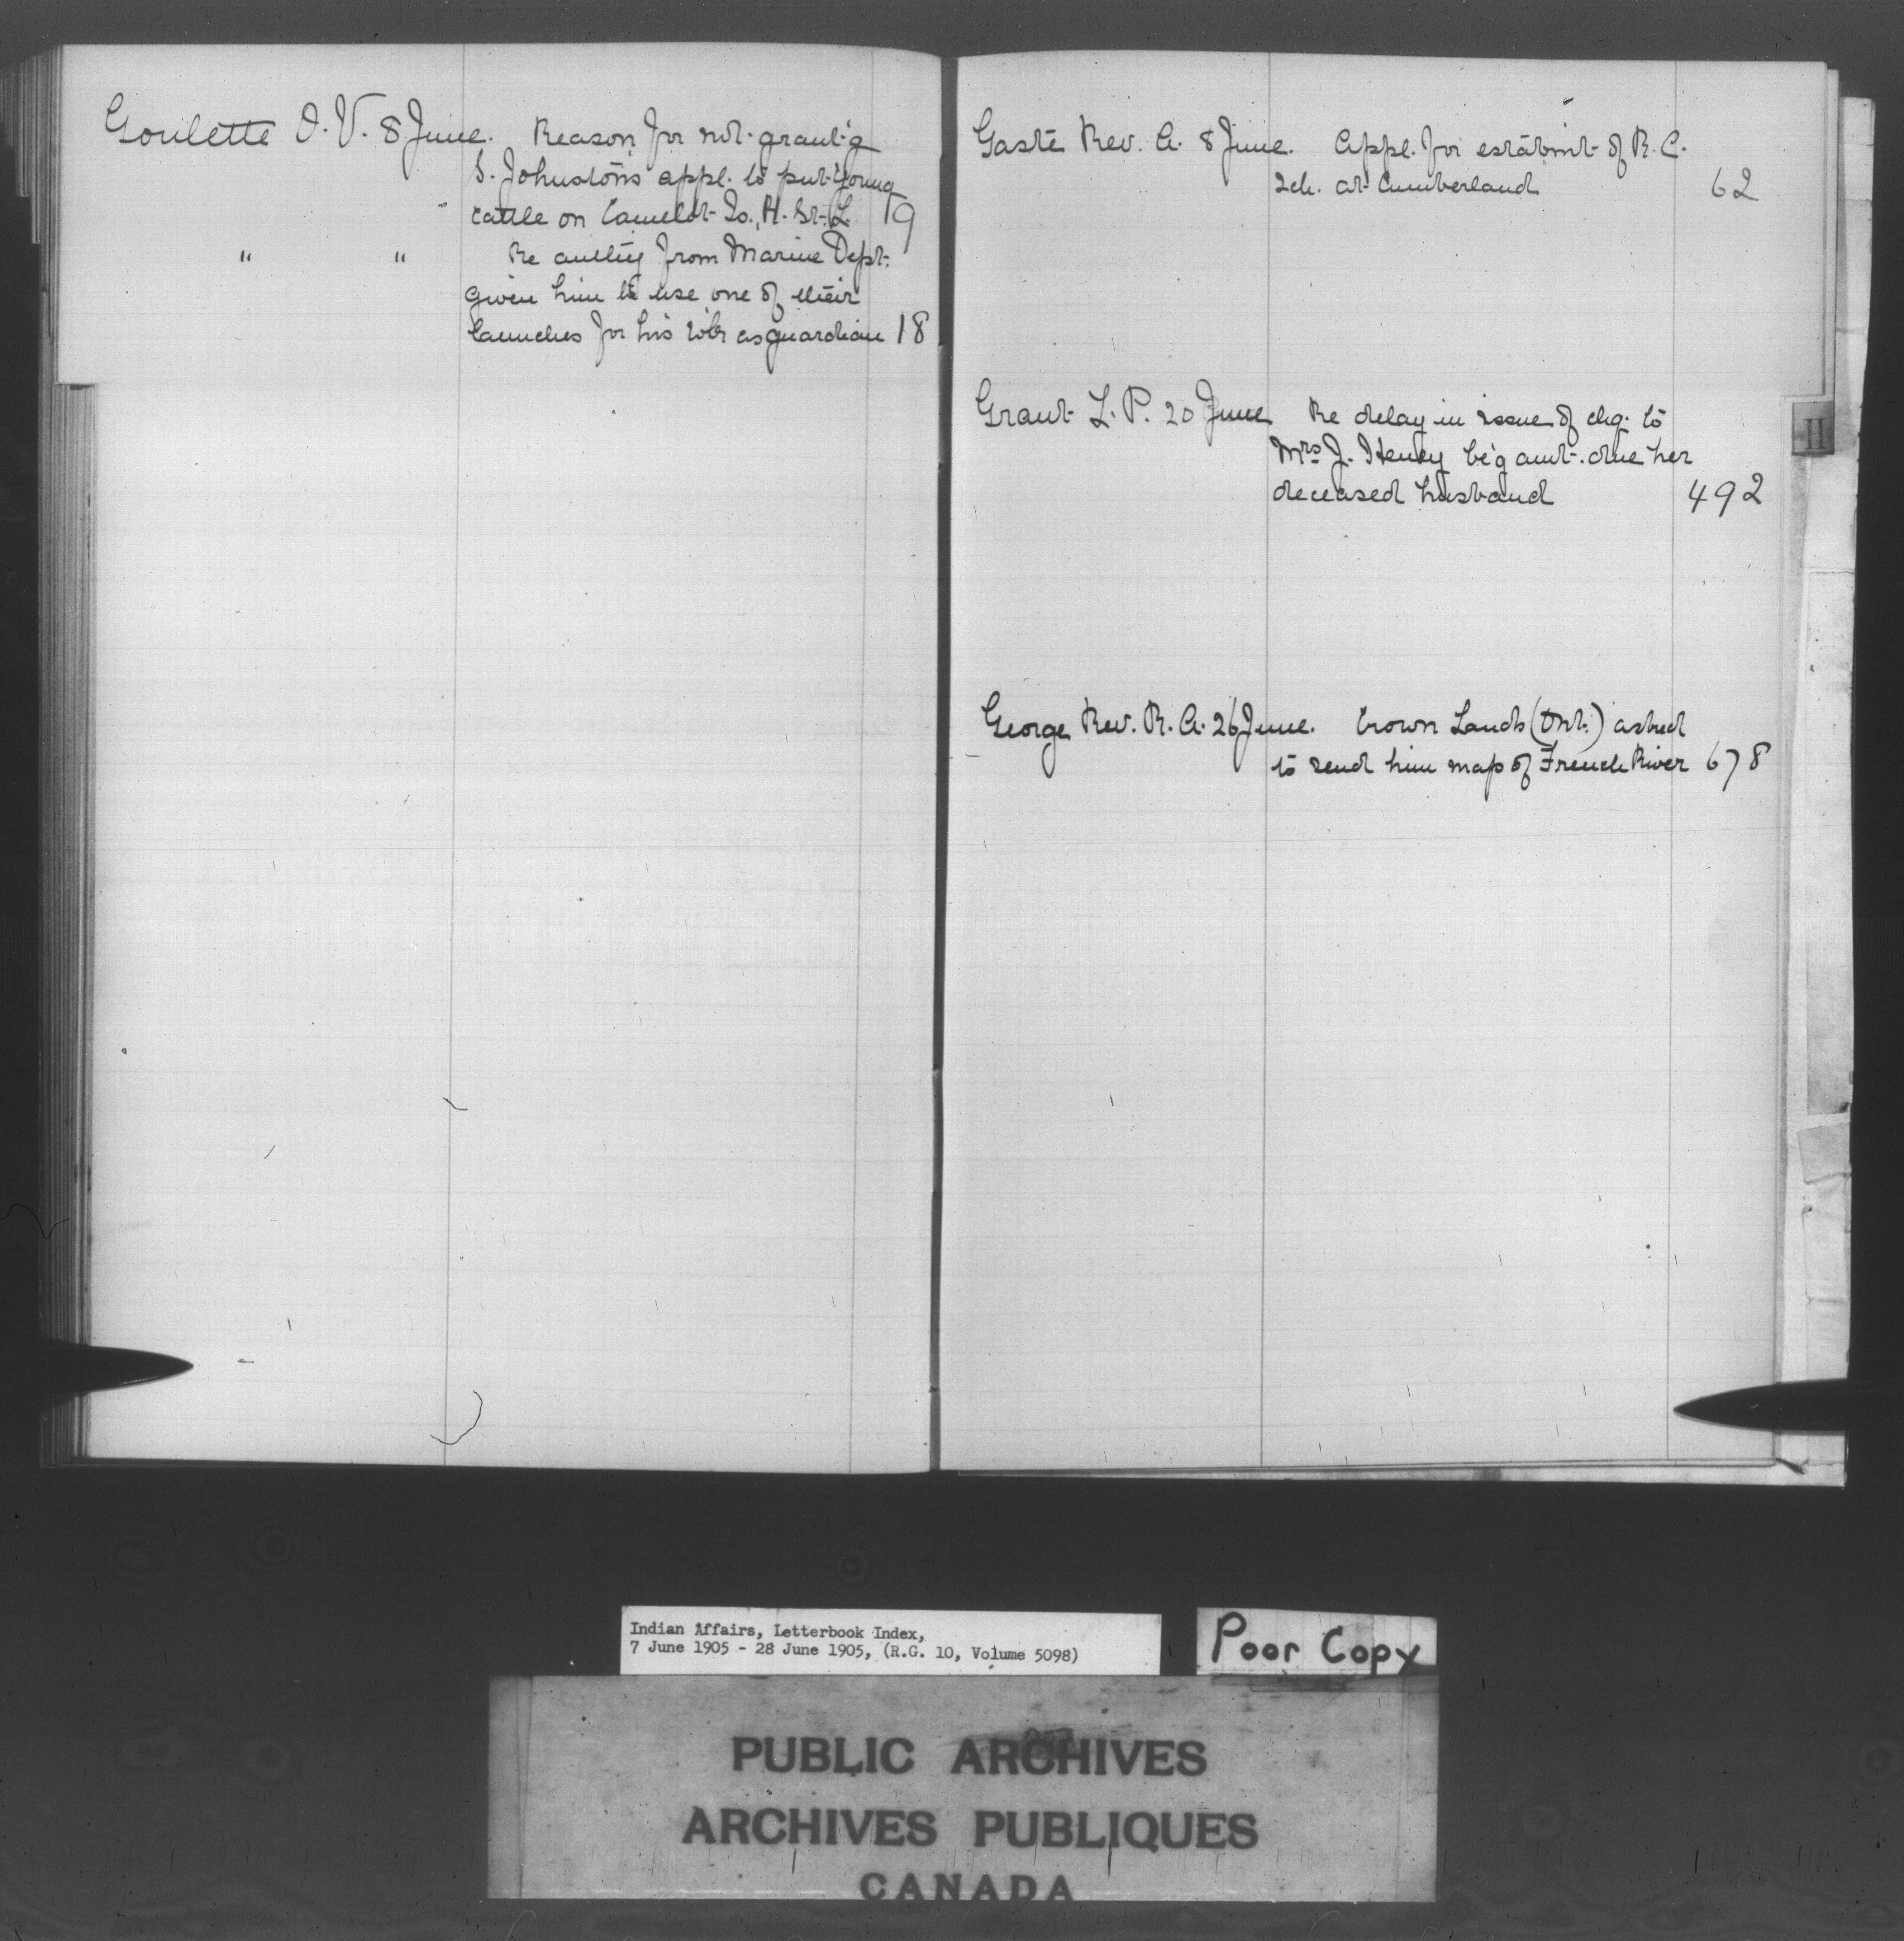 Goulette O. V. 8 June. Reason for not grant'g
S. Johnston's appl. to put young
cattle on Camelot Is., R. St. L. 19
" " Re authy from Marine Dept.
given him to use one of their
launches for his wk as guardian 18
Gasté Rev. A. 8 June. Appl. for estabmt of R. C.
Sch. at Cumberland 62
Grant L. P. 20 June Re delay in issue of chq. to
Mrs J. Henry be'g amt. due her
deceased husband 492
George Rev. R. A. 26 June. Crown Lands (Ont.) asked
to send him map of French River 678
H
Indian Affairs, Letterbook Index,
7 June 1905 - 28 June 1905, (R.G. 10, Volume 5098)
Poor Copy
PUBLIC ARCHIVES
ARCHIVES PUBLIQUES
CANADA